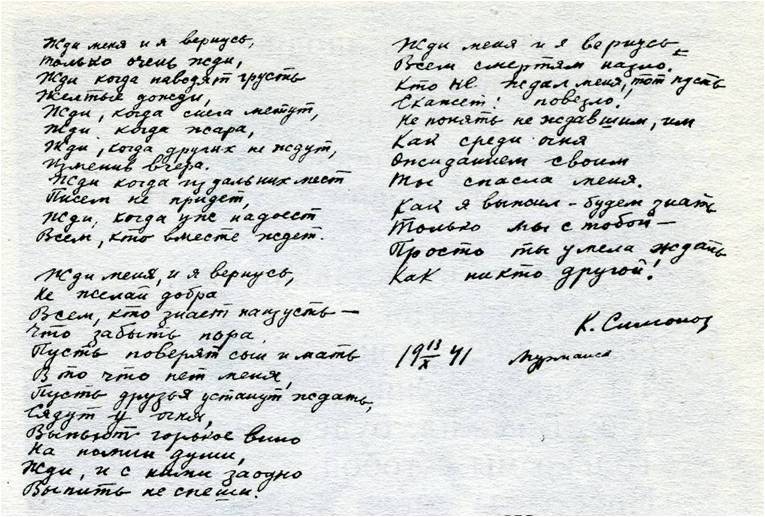 Жди меня и я вернусь,
Только очень жди,
Жди когда наводят грусть
Желтые дожди,
Жди, когда снега метут,
Жди когда жара,
Жди, когда других не ждут,
Изменив вчера.
Жди когда из дальних мест
Писем не придет,
Жди, когда уже надоест
Всем, кто вместе ждет.
Жди меня, и я вернусь,
Не желай добра
Всем, кто знает наизусть —
Что забыть пора.
Пусть поверят сын и мать
В то что нет меня,
Пусть друзья устанут ждать,
Сядут у огня,
Выпьют горькое вино
На помин души,
Жди, и с ними заодно
Выпить не спеши.
Жди меня и я вернусь
Всем смертям назло,
Кто не ждал меня, тот пусть
Скажет: повезло!
Не понять не ждавшим, им
Как среди огня
Ожиданием своим
Ты спасла меня.
Как я выжил – будем знать
Только мы с тобой —
Просто ты умела ждать
Как никто другой!
К. Симонов
19 13/X 41 Мурманск